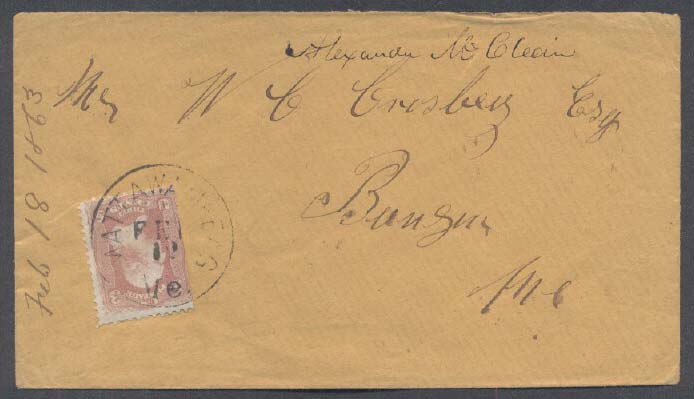 Alexander McClain
Mr W C Crosby Esq
Bangor
Me
Feb 18 1863
MATTAWAMKEAG
FEB
Me.
3
3